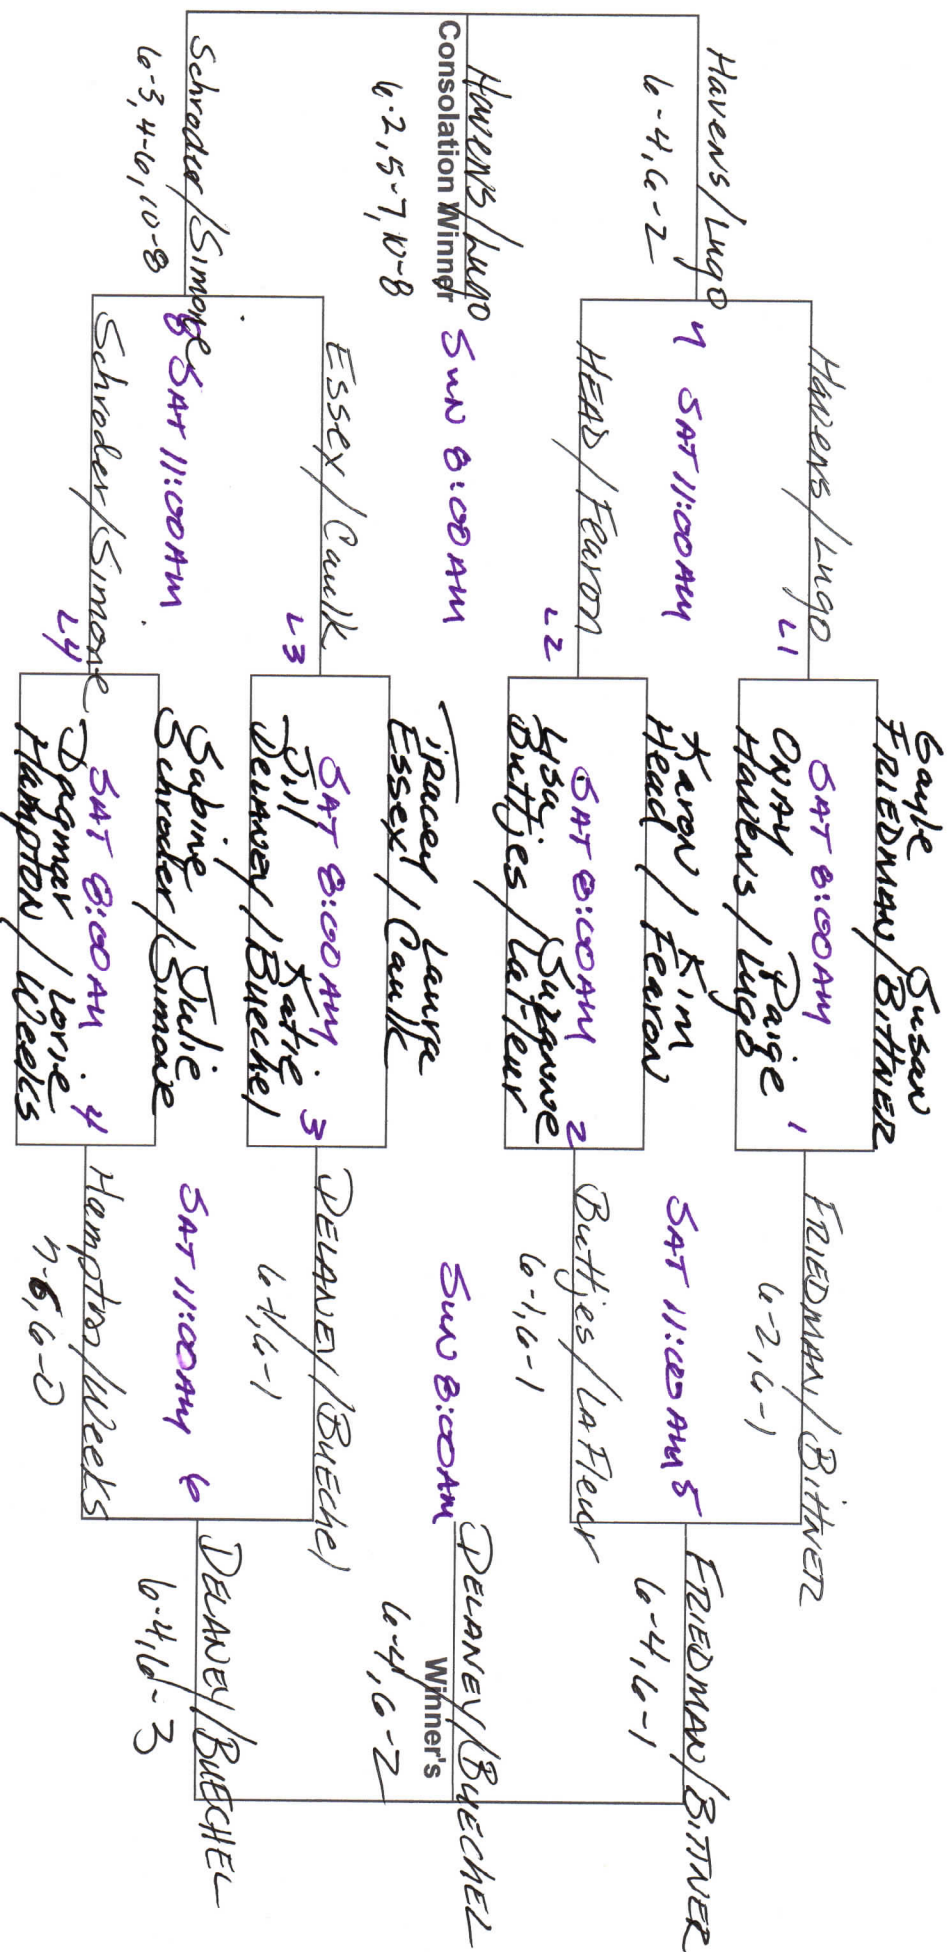 Gayle Susan
FRIEDMAN / BITTNER
SAT 8:00AM 1
Paige
Havens / Lugo
Karon / Kim
Head / Fearon
SAT 8:00AM 2
Suzanne
Buttjes / LaFleur
Tracey Laura
Essex / Caulk
SAT 8:00AM 3
Jill Katie
DELANEY / Buechel
Sabine Julie
Schroder / Simone
SAT 8:00AM 4
Dagmar / Lorie
HAMPTON / Weeks
FRIEDMAN / BITTNER
6-2, 6-1
SAT 11:00AM 5
Buttjes / LaFleur
6-1, 6-1
DELANEY / BUEChel
6-1, 6-1
SAT 11:00AM 6
Hampton / Weeks
7-6, 6-0
FRIEDMAN / BITTNER
6-4, 6-1
SUN 8:00AM
DELANEY / BUECHEL
Winner's
6-4, 6-2
DELANEY / BUECHEL
6-4, 6-3
Havens / Lugo
L1
7 SAT 11:00AM
HEAD / Fearon
L2
Essex / Caulk
L3
8 SAT 11:00AM
Schroder / Simone
L4
Havens / Lugo
6-4, 6-2
Havens / Lugo
SUN 8:00AM
Consolation Winner
6-2, 5-7, 10-8
Schroder / Simone
6-3, 4-6, 10-8